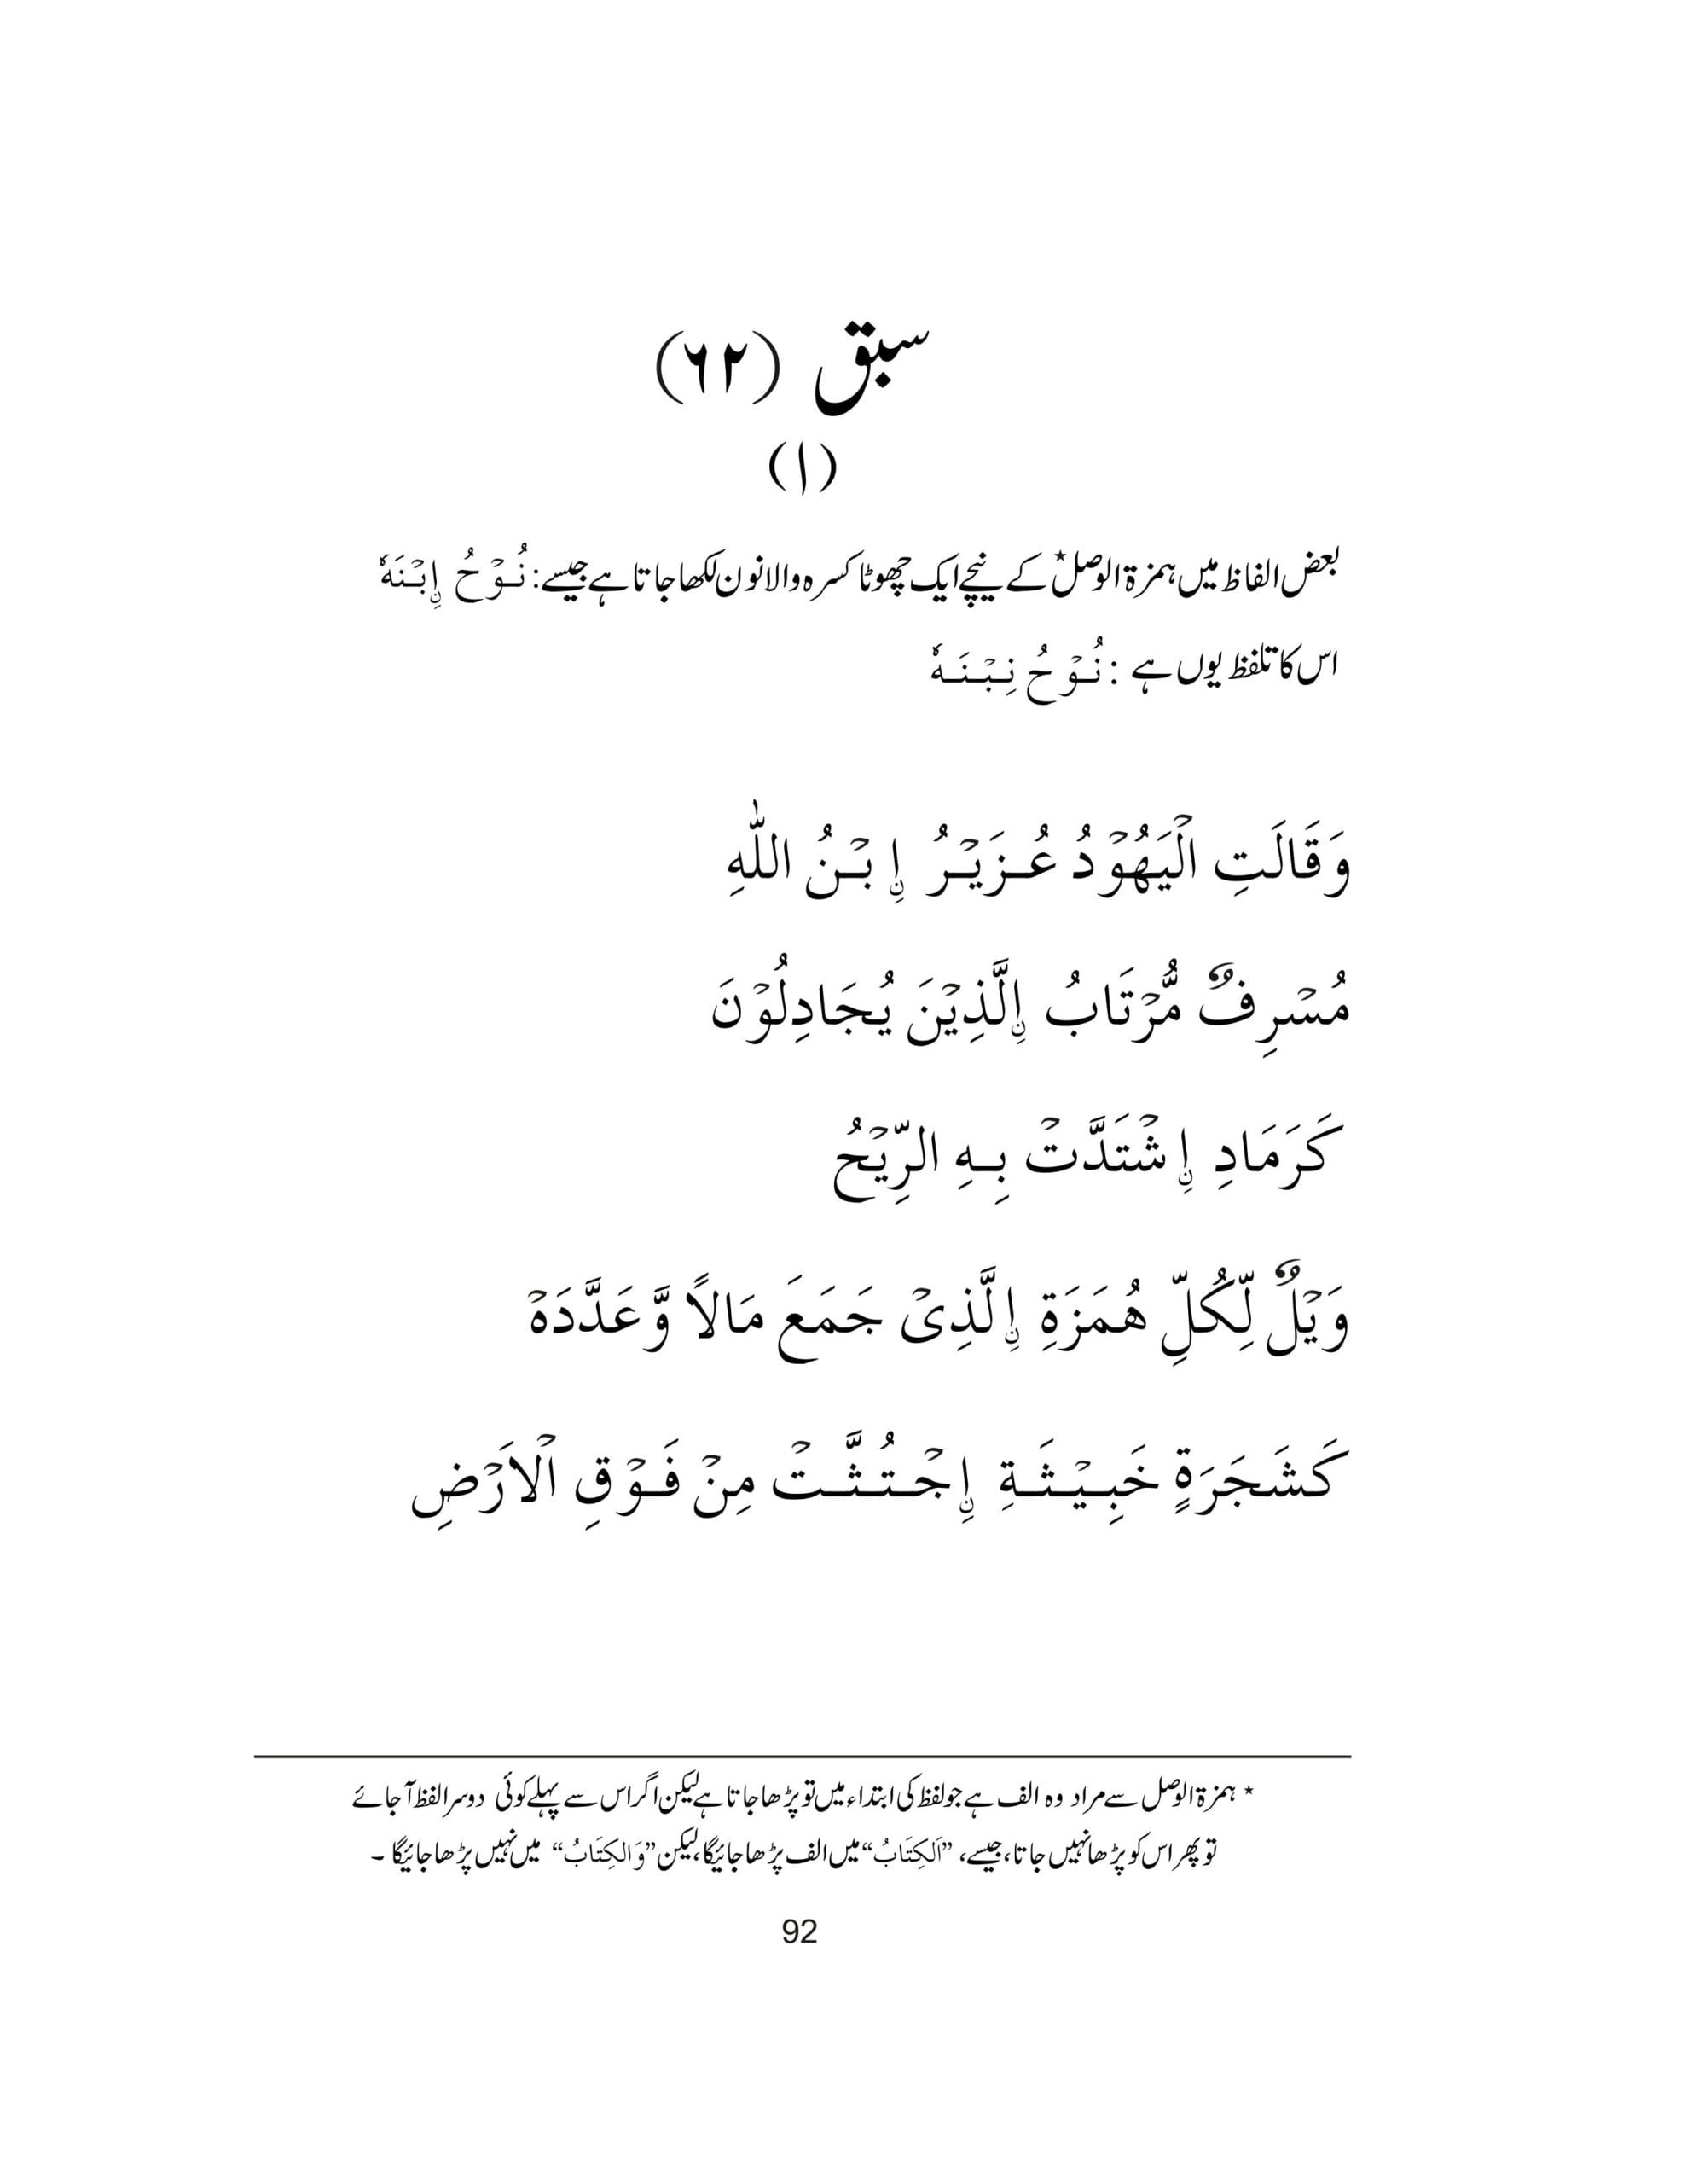 سبق (۶۲)
(۱)
بعض الفاظ میں ہمزۃ الوصل* کے نیچے ایک چھوٹا کسرہ والا نون لکھا جاتا ہے جیسے: نُوْحُ اِۨبْنَهٗ
اس کا تلفظ یوں ہے : نُوْحُ نِبْنَهٗ
وَقَالَتِ الْيَهُوْدُ عُزَيْرُ اِۨبْنُ اللّٰهِ
مُسْرِفٌ مُّرْتَابُ اِۨلَّذِيْنَ يُجَادِلُوْنَ
كَرَمَادِ اِۨشْتَدَّتْ بِهِ الرِّيْحُ
وَيْلٌ لِّكُلِّ هُمَزَةِ اِۨلَّذِىْ جَمَعَ مَالاً وَّعَدَّدَهْ
كَشَجَرَةٍ خَبِيْثَةِ اِۨجْتُثَّتْ مِنْ فَوْقِ الْاَرْضِ
* ہمزۃ الوصل سے مراد وہ الف ہے جو لفظ کی ابتداء میں تو پڑھا جاتا ہے لیکن اگر اس سے پہلے کوئی دوسرا لفظ آ جائے
تو پھر اس کو پڑھا نہیں جاتا، جیسے، ”اَلكِتَابُ“ میں الف پڑھا جائیگا، لیکن ”وَالكِتَابُ“ میں نہیں پڑھا جائیگا ۔
92